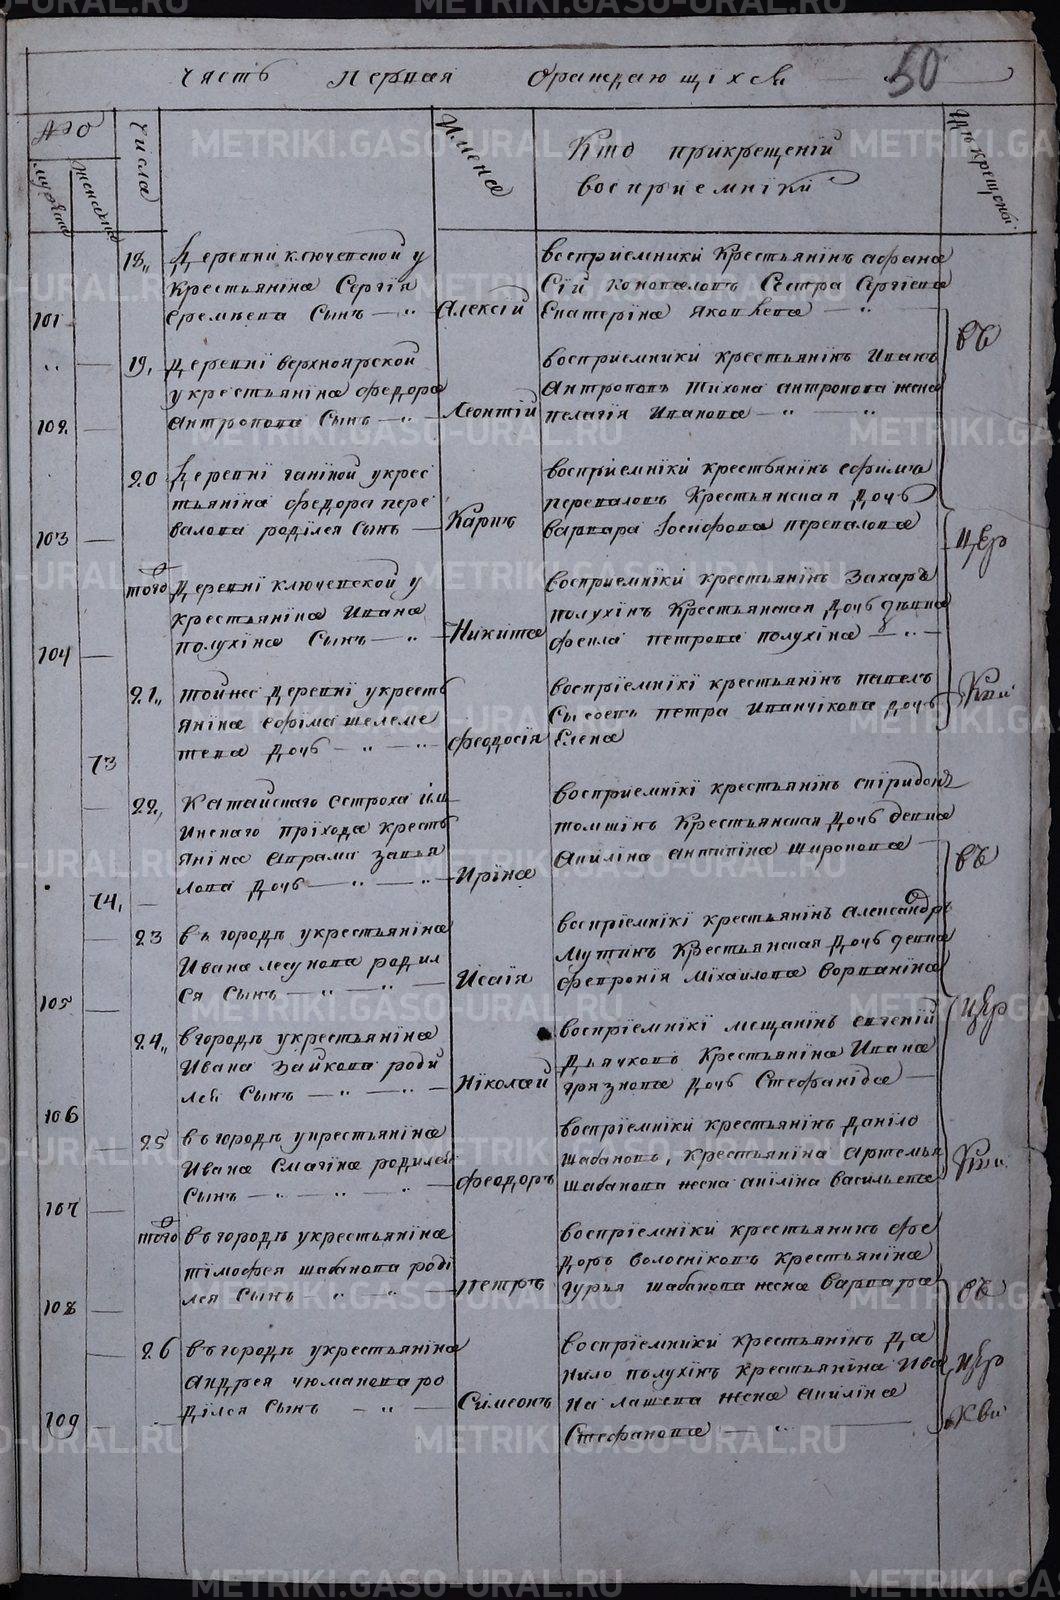 Часть Первая ОРаждающихся
50
№ О
мужеска
женска
Числа
Имена
Кто прикрещенiи
восприемнiки
Где крещены
101
18,,
Деревни ключевской у
крестьянiна Сергiя
Еремѣева Сынъ — ,, 
Алексiй
восприемники Крестьянiнъ афана
Сiй коновалов Сестра Сергiева
Екатерiна Яковлева — ,, —
102
19,
деревнi верхноярской
укрестьянiна федора
антропова Сынъ — ,, —
Леонтiй
восприемники крестьянiнъ Иванъ
Антроповъ тихона антропова жена
пелагiя Иванова — ,, — ,,
103
20
Деревнi ганiной укрес
тьянiна федора пере
валова родiлся Сынъ —
Карпъ
восприемнiки крестьянiнъ ефимъ
переваловъ Крестьянская дочь
варвара Iосифова перевалова
104
того
деревнi ключевской у
крестьянiна Ивана
полухiна Сынъ — ,, —
Никита
восприемнiки крестьянiнъ Захаръ
полухiнъ Крестьянская дочь девка
фекла петрова полухiна — ,, —
73
21,,
тойже деревнi укресть
янiна ефiма шелеме
тева дочь — ,, — ,,
феодосiя
воспрiемнiкi крестьянiнъ павелъ
Сысоевъ петра Иванчiкова дочь
Елена
74,
22,
Катайскаго Острога iли
инскаго прiхода кресть
янiна аврама завья
лова дочь — ,, — ,,
Ирiна
восприемнiкi крестьянiнъ спiридонъ
томшiнъ Крестьянская дочь девка
акилiна антипiна широнова —
105
23
въ городѣ укрестьянiна
Ивана лесунова родил
ся Сынъ ,, — ,, —
Исаiя
воспрiемнiкi крестьянiнъ александръ
Мутинъ Крестьянская дочь девка
февронiя Мiхаилова ворванiна
106
24,,
вгородѣ укрестьянiна
Ивана Зайкова роди
лся Сынъ — ,, — ,, —
Нiколай
воспрiемнiкi мещанiнъ евгенiй
Дьячковъ Крестьянiна Ивана
грязнова дочь Стефанiда —
107
25
въ городѣ укрестьянiна
Ивана Смагiна родился
Сынъ — ,, — ,, — ,, —
феодоръ
воспрiемнiки крестьянiнъ данiло
шабановъ, крестьянiна артемья
шабанова жена акiлiна васильева
108
того
въ городѣ укрестьянiна
тiмофея шабанова родi
лся Сынъ ,, — ,, —
Петръ
воспрiемнiки крестьянинъ фе
доръ волоснiковъ крестьянiна
гурья шабанова жена варвара
109
26
въ городѣ укрестьянiна
андрея чюманова ро
дiлся Сынъ — ,, —
Сiмеонъ
Воспрiемники крестьянiнъ Да
нило полухiнъ крестьянiна Ива
на лашева жена акилiна
Стефанова — ,, —
въ
цер
кви
въ
цер
кви
въ
цер
кви
METRIKI.GASO-URAL.RU